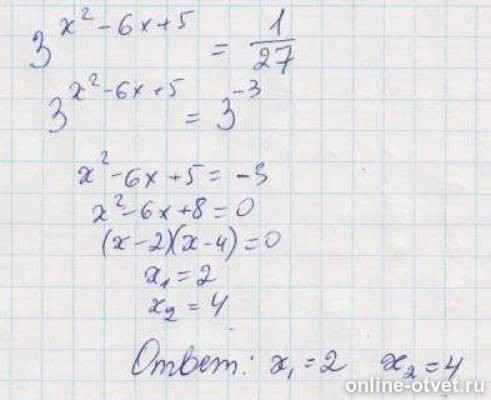 3^{x² - 6x + 5} = 1/27
3^{x² - 6x + 5} = 3^{-3}
x² - 6x + 5 = -3
x² - 6x + 8 = 0
(x - 2)(x - 4) = 0
x₁ = 2
x₂ = 4
Ответ: x₁ = 2 x₂ = 4
online-otvet.ru